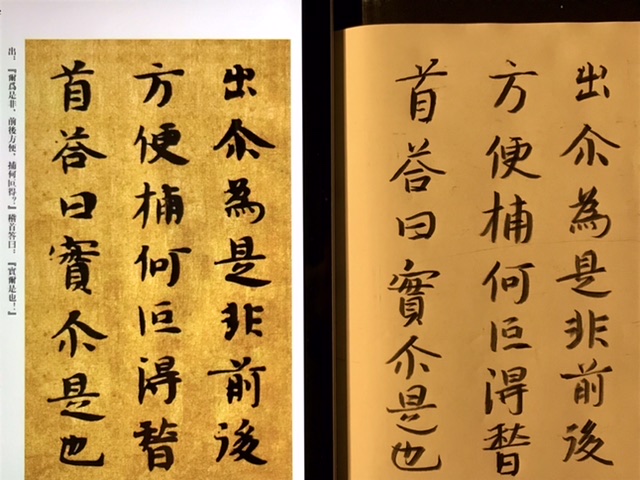 出尒為是非前後
方便捕何叵淂稽
首荅曰實尒是也
出：『爾爲是非，前後方便，捕何叵得？』稽首答曰：『實爾是也！』
出尒為是非前後
方便捕何叵淂稽
首荅曰實尒是也